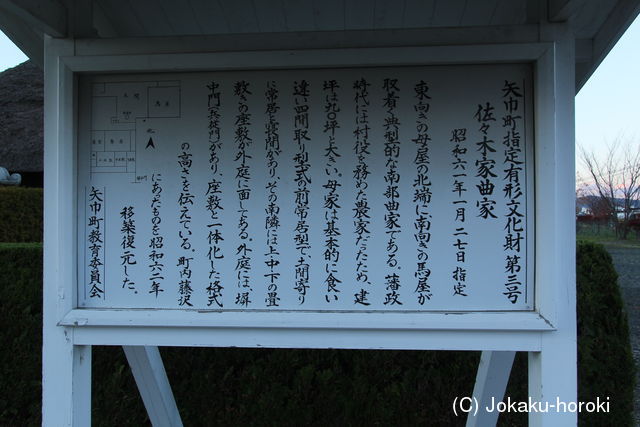 矢巾町指定有形文化財 第三号
佐々木家曲家
昭和六二年一月二七日 指定
東向きの母屋の北端に南向きの馬屋が
取着く典型的な南部曲家である。藩政
時代には村役を務めた農家だったため、建
坪は九〇坪と大きい。母家は基本的に食い
違い四間取り型式の前常居型で、土間寄り
に常居と寝間があり、その南隣には上中下の畳
敷きの座敷が外庭に面してある。外庭には、塀
中門があり、座敷と一体化した格式
の高さを伝えている。町内藤沢
にあったものを昭和六二年
移築復元した。
矢巾町教育委員会
北
(C) Jokaku-horoki